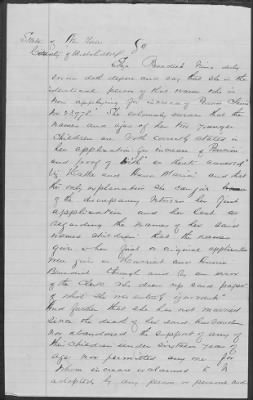 State of New York
County of So
Benedict being duly
sworn doth depose and say that she is the
identical person of that name who is
now applying for increase of Pension Claim
No. She solemnly swears that the
names and age of her two younger
children are both correctly stated in
her application for increase of Pension
and proof of birth in thereto annexed
by Hattie and Anna Maria and that
the only explanation she can give
of the discrepancy between her first
application and her last as
regarding the names of her said
children is that the names
give when first or original application
were given as Harriet and Anna
Benedict through and by an error
of the Clerk who drew up said papers
of which she was entirely ignorant
And further that she has not married
since the death of her said husband
nor abandoned the support of any of
his children under sixteen years of
age nor permitted any one for
whom increase is claimed to be
adopted by any person or persons and